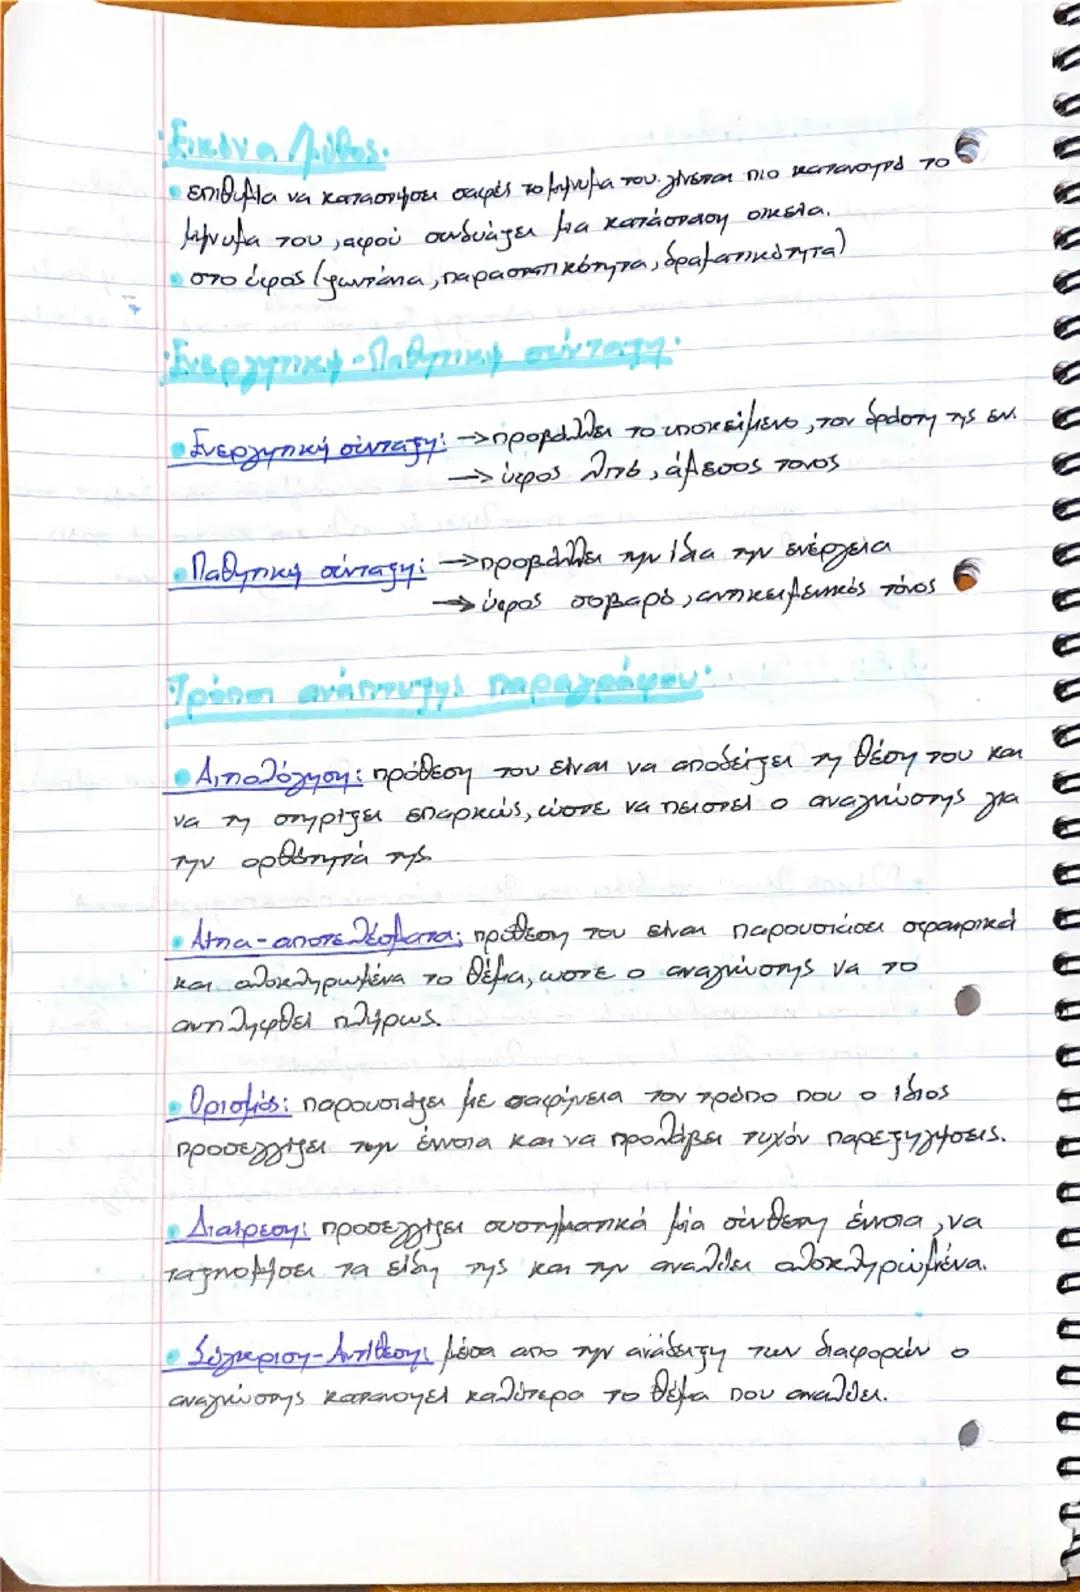 Εικόνα Μύθος.
επιθυμία να καταστήσει σαφές το μήνυμα του. γίνεται πιο κατανοητό το
μήνυμα του, αφού συνδυάζει μια κατάσταση οικεία.
στο ύφος (ζωντάνια, παραστατικότητα, δραματικότητα)
Ενεργητική - Παθητική σύνταξη.
Ενεργητική σύνταξη: → προβάλλει το υποκείμενο, τον δράστη της εν.
→ ύφος λιτό, άμεσος τονος
Παθητική σύνταξη: → προβάλλει την ίδια την ενέργεια
→ ύφος σοβαρό, αντικειμενικός τόνος
Τρόποι ανάπτυξης παραγράφου.
Αιτιολόγηση: πρόθεση του είναι να αποδείξει τη θέση του και
να τη στηρίξει επαρκώς, ώστε να πειστεί ο αναγνώστης για
την ορθότητά της.
Αίτια - αποτελέσματα: πρόθεση του είναι παρουσιάσει σφαιρικά
και ολοκληρωμένα το θέμα, ωστε ο αναγνώστης να το
αντιληφθεί πλήρως.
Ορισμός: παρουσιάζει με σαφήνεια τον τρόπο που ο ίδιος
προσεγγίζει την έννοια και να προλάβει τυχόν παρεξηγήσεις.
Διαίρεση: προσεγγίζει συστηματικά μία σύνθετη έννοια, να
ταξινομήσει τα είδη της και την αναλύει ολοκληρώμένα.
Σύγκριση - Αντίθεση: μέσα απο την ανάδειξη των διαφορών ο
αναγνώστης κατανοηεί καλύτερα το θέμα που αναλύει.